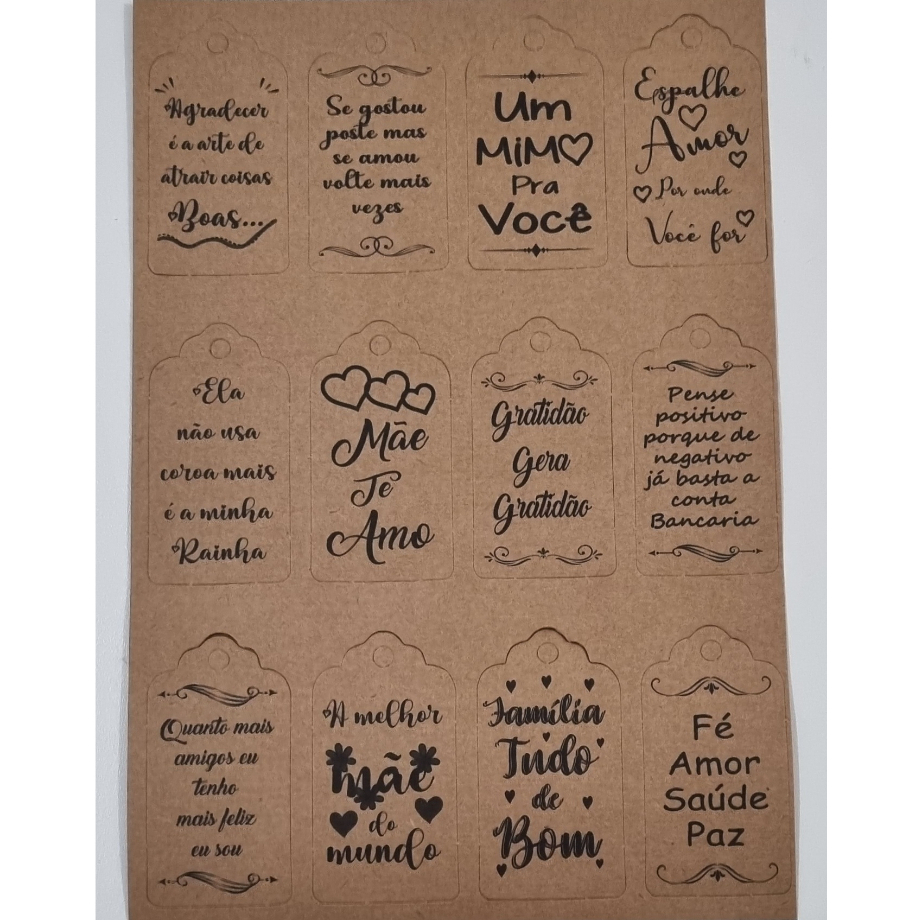 Agradecer
é a arte de
atrair coisas
Boas...
Se gostou
poste mas
se amou
volte mais
vezes
Um
MiMO
Pra
Você
Espalhe
Amor
Por onde
Você for
Ela
não usa
coroa mais
é a minha
Rainha
Mãe
Te
Amo
Gratidão
Gera
Gratidão
Pense
positivo
porque de
negativo
já basta a
conta
Bancaria
Quanto mais
amigos eu
tenho
mais feliz
eu sou
A melhor
mãe
do
mundo
Família
Tudo
de
Bom
Fé
Amor
Saúde
Paz